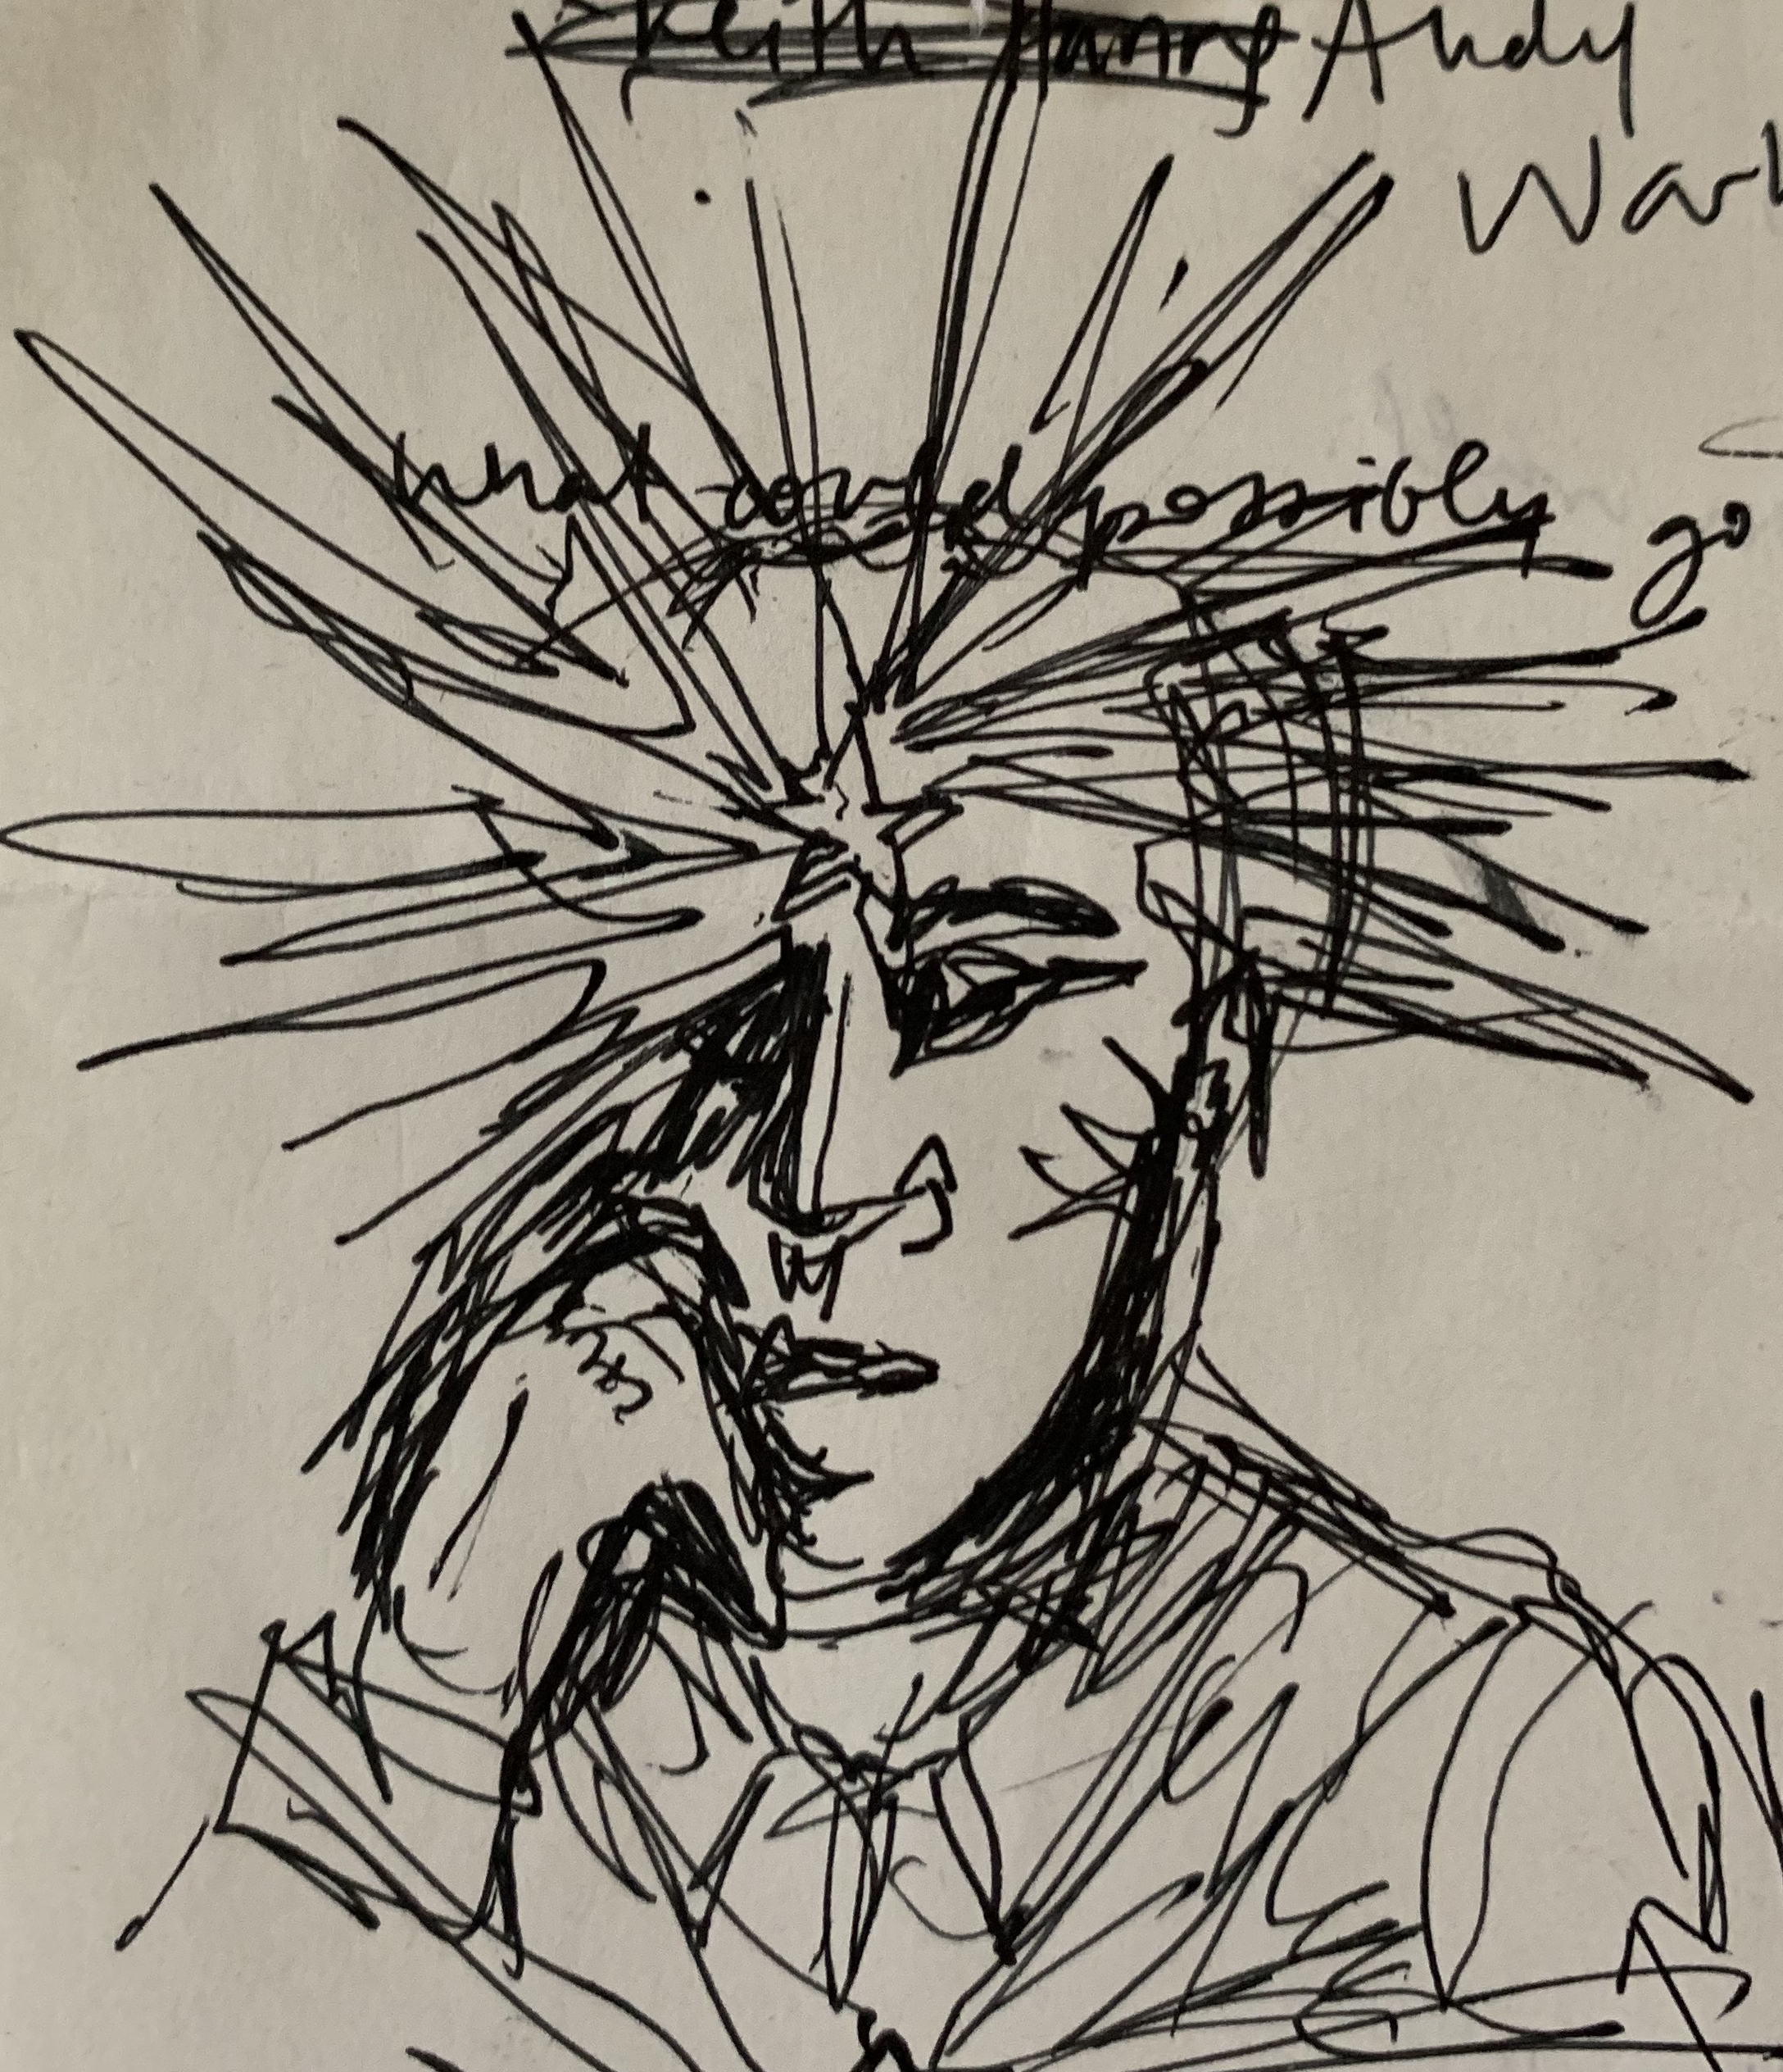 Keith Haring Andy
Warh
what could possibly go